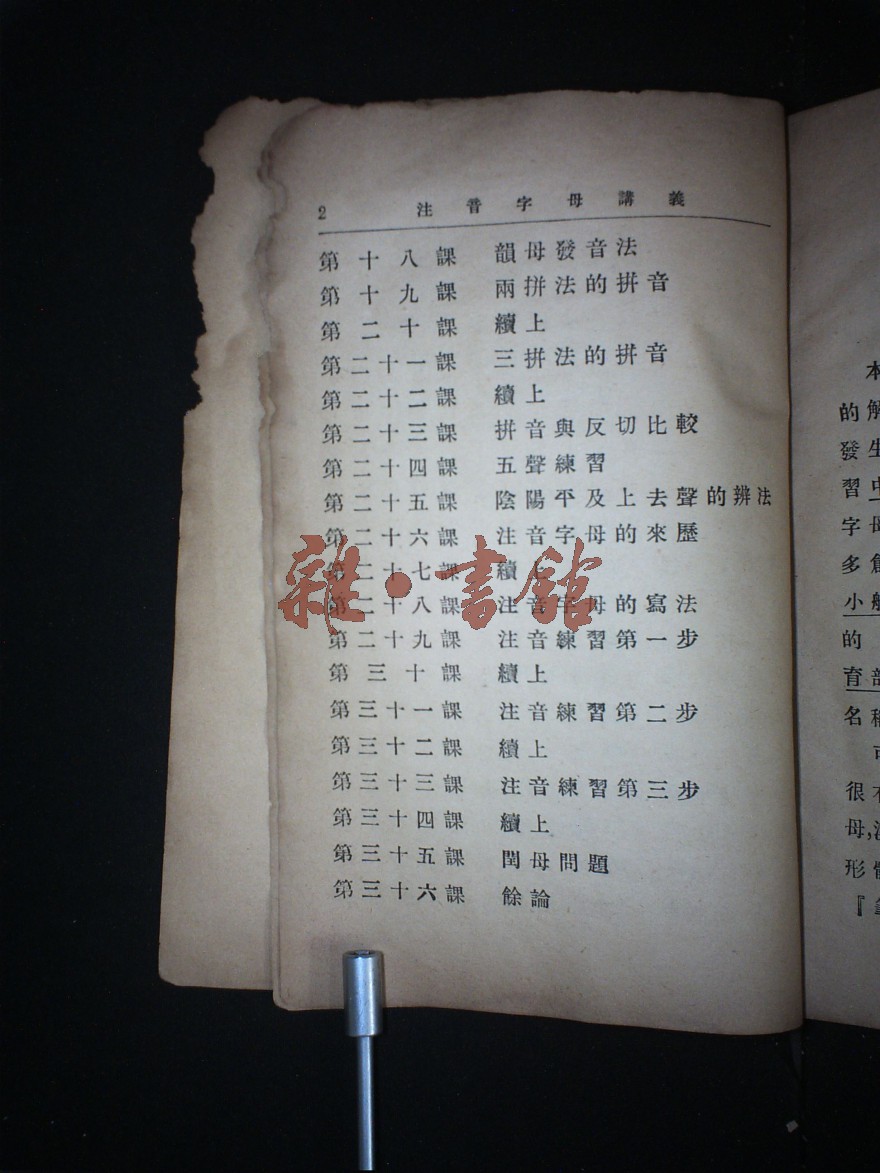 2 注音字母講義
第十八課 韻母發音法
第十九課 兩拼法的拼音
第二十課 續上
第二十一課 三拼法的拼音
第二十二課 續上
第二十三課 拼音與反切比較
第二十四課 五聲練習
第二十五課 陰陽平及上去聲的辨法
第二十六課 注音字母的來歷
第二十七課 續上
第二十八課 注音字母的寫法
第二十九課 注音練習第一步
第三十課 續上
第三十一課 注音練習第二步
第三十二課 續上
第三十三課 注音練習第三步
第三十四課 續上
第三十五課 閏母問題
第三十六課 餘論
雜·書館
本
的解
發生
習
字母
多
小
的
育部
名稱
很
母,
形
『